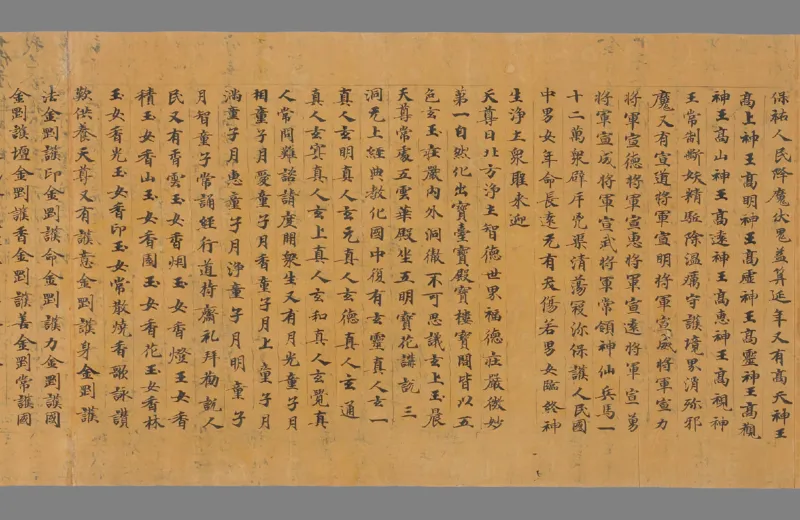 保祐人民降魔伏鬼益筭延年又有高天神王
高上神王高明神王高虛神王高靈神王高觀
神王高山神王高遠神王高惠神王高視神
王常制斷妖精駈除溫癘守護境界消弥邪
魔又有宣道將軍宣明將軍宣威將軍宣力
將軍宣德將軍宣惠將軍宣遠將軍宣勇
將軍宣威將軍宣武將軍常領神仙兵馬一
十二萬衆辟斥兇杲清蕩寇弥保護人民國
中男女年命長遠无有夭傷若男女臨終神
生淨土衆雎來迎
天尊曰北方淨土智德世界福德莊嚴微妙
第一自然化出寶臺寶殿寶樓寶閣皆以五
色玄玉莊嚴內外洞徹不可思議玄上玉晨
天尊常處五雲華殿坐五明寶花講說三
洞无上經典教化國中復有玄靈真人玄一
真人玄明真人玄元真人玄德真人玄通
真人玄寂真人玄上真人玄和真人玄覺真
人常問難諮請度開衆生又有月光童子月
相童子月愛童子月香童子月上童子月
滿童子月惠童子月淨童子月明童子
月智童子常誦經行道持齋礼拜勸說人
民又有香雲玉女香烟玉女香燈玉女香
積玉女香山玉女香園玉女香花玉女香林
玉女香光玉女香印玉女常散燒香歌詠讚
歎供養天尊又有護意金剛護身金剛護
法金剛護印金剛護命金剛護力金剛護國
金剛護壇金剛護香金剛護善金剛常護國